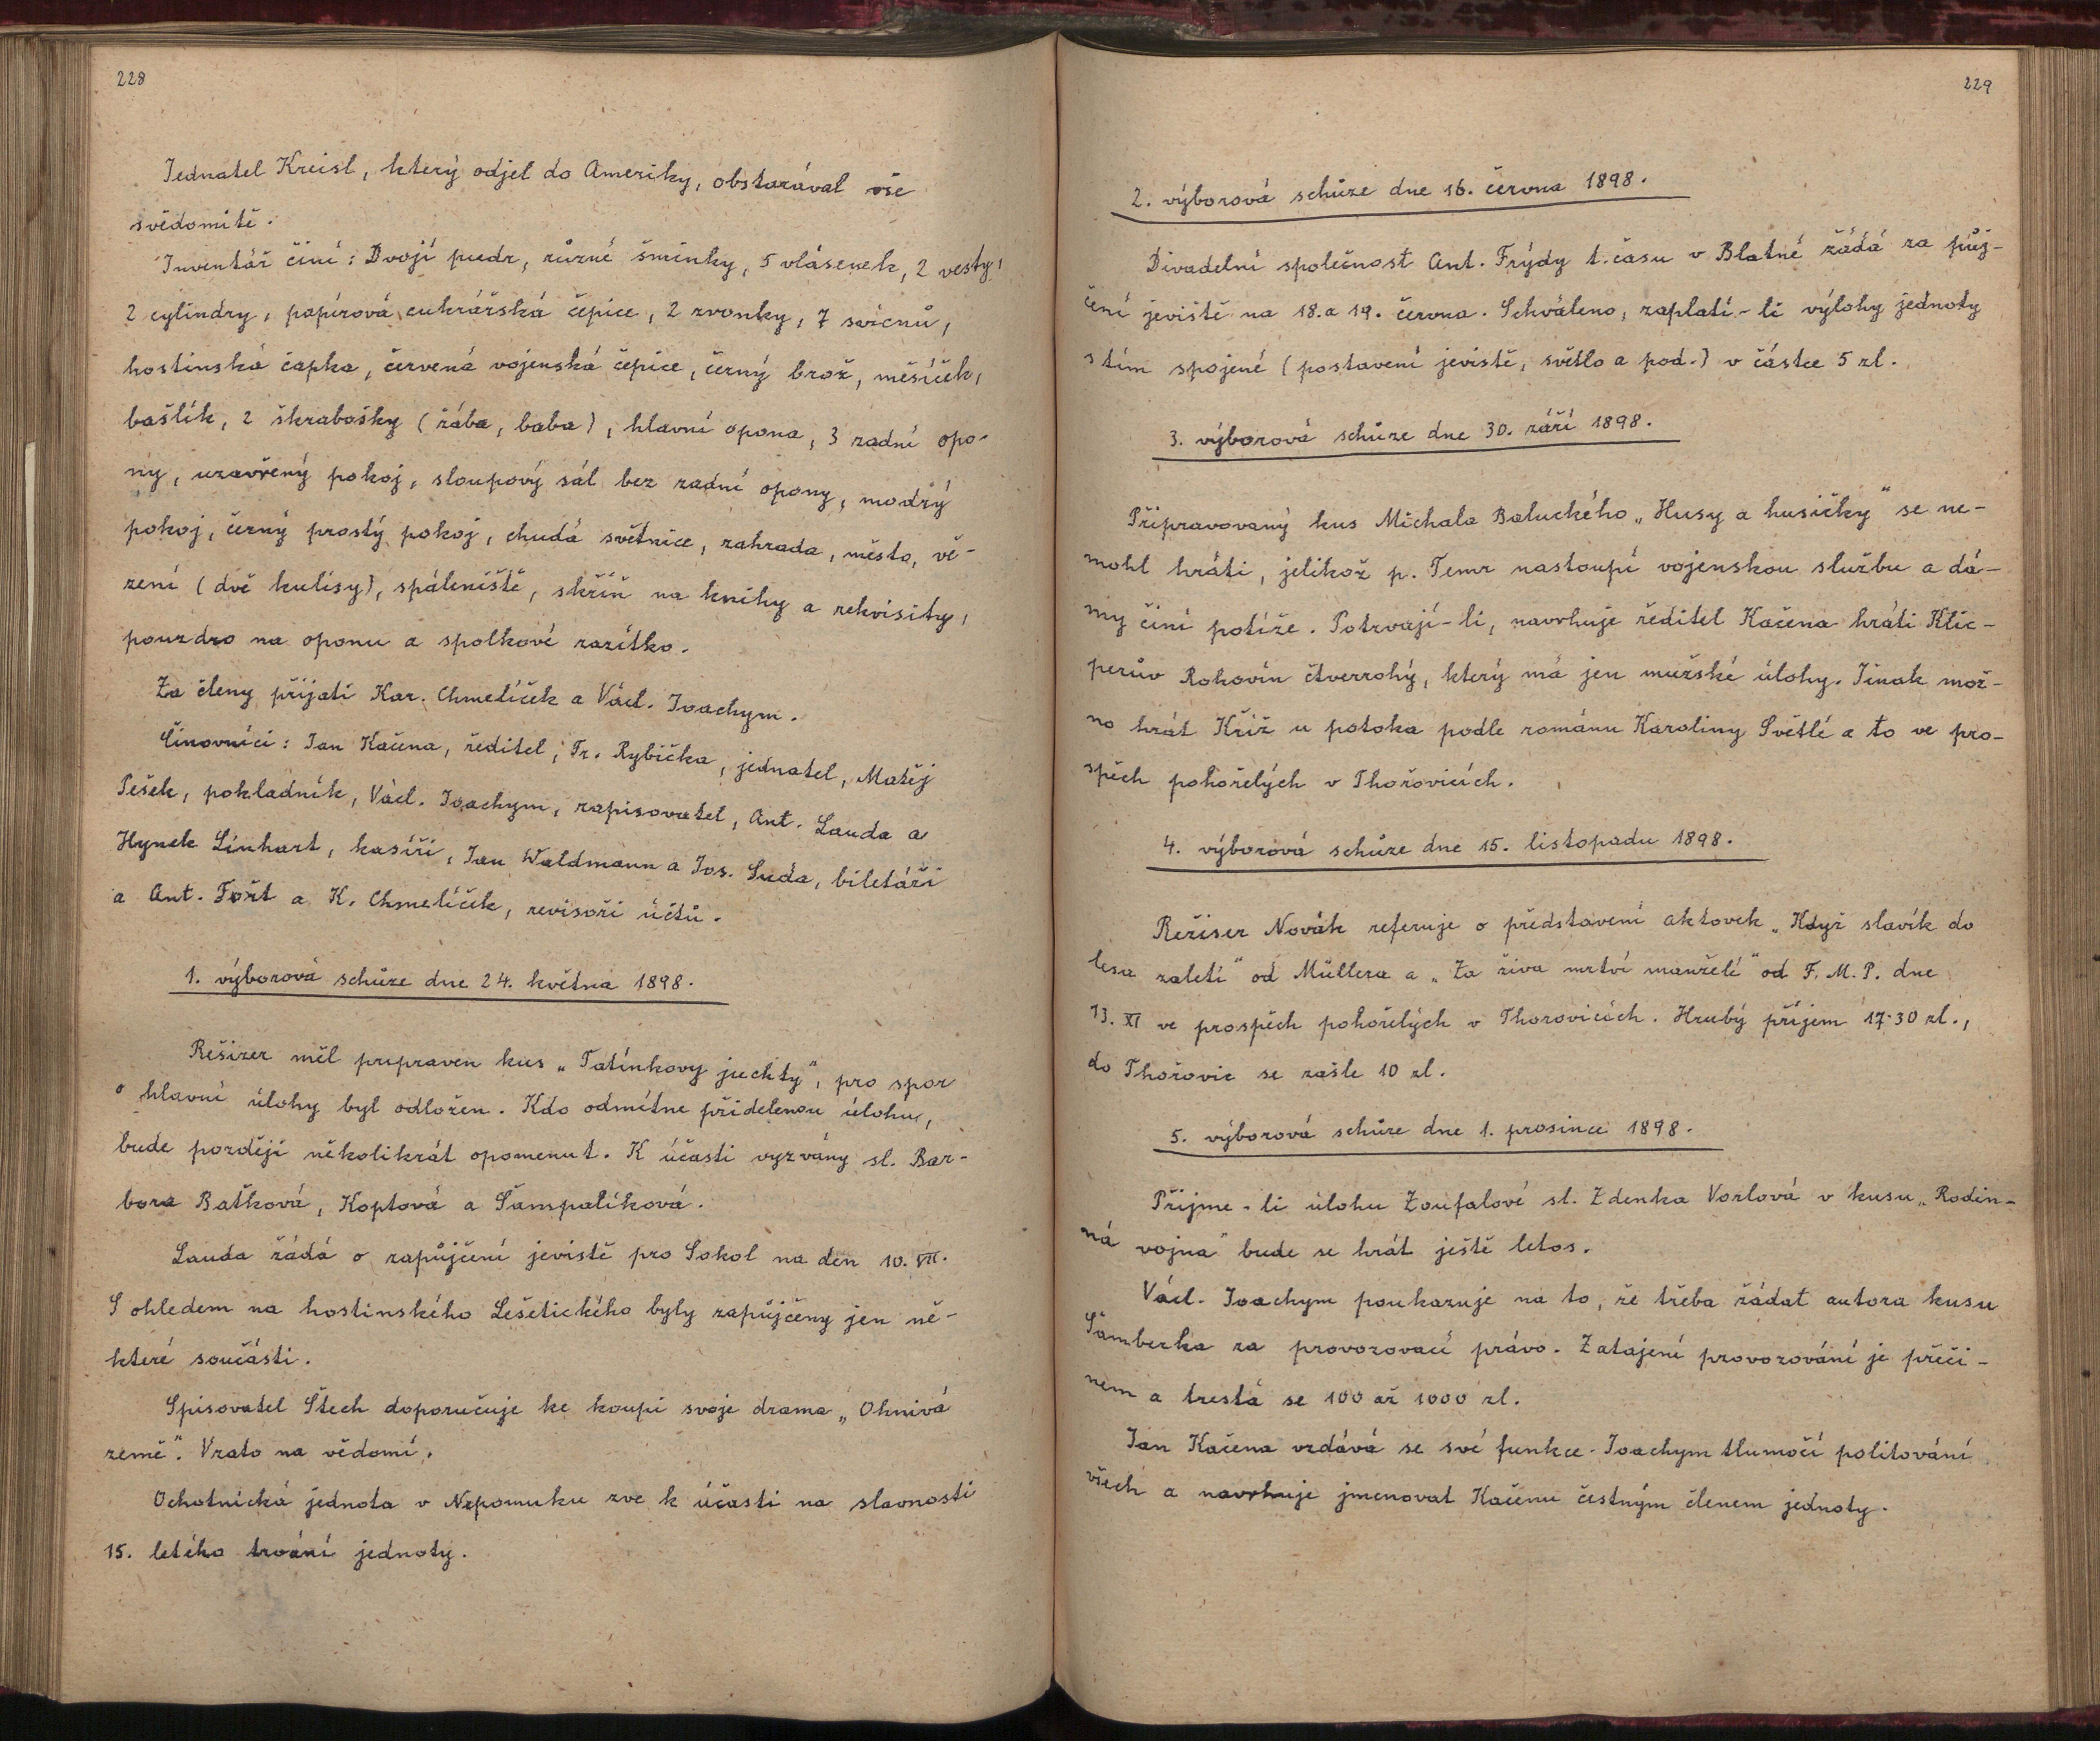 228
Jednatel Kreisl, který odjel do Ameriky, obstarával vše
svědomitě.
Inventář činí: Dvojí pudr, různé šminky, 5 vlásenek, 2 vesty,
2 cylindry, papírová cukrářská čepice, 2 zvonky, 7 svícnů,
hostinská čapka, červená vojenská čepice, černý brož, měšíček,
bašlík, 2 škrabošky (žába, baba), hlavní opona, 3 zadní opo-
ny, uzavřený pokoj, sloupový sál bez zadní opony, modrý
pokoj, černý prostý pokoj, chudá světnice, zahrada, město, vě-
zení (dvě kulisy), spáleniště, skříň na knihy a rekvisity,
pouzdro na oponu a spolkové razítko.
Za členy přijati Kar. Chmelíček a Václ. Joachym.
Činovníci: Jan Kačena, ředitel, Fr. Rybička, jednatel, Matěj
Pešek, pokladník, Václ. Joachym, zapisovatel, Ant. Lauda a
Hynek Linhart, kasíři, Jan Waldmann a Jos. Suda, biletáři
a Ant. Fořt a K. Chmelíček, revisoři účtů.
1. výborová schůze dne 24. května 1898.
Rešizer měl pripraven kus „Tatínkovy juchty", pro spor
o hlavní úlohy byl odložen. Kdo odmítne přidelenou úlohu,
bude později několikrát opomenut. K účasti vyzvány sl. Bar-
bora Baťková, Koptová a Šampalíková.
Lauda žádá o zapůjčení jeviště pro Sokol na den 10. VII.
S ohledem na hostinského Lešetického byly zapůjčeny jen ně-
které součásti.
Spisovatel Štech doporučuje ke koupi svoje drama „Ohnivá
země". Vzato na vědomí.
Ochotnická jednota v Nepomuku zve k účasti na slavnosti
15. letého trvání jednoty.
229
2. výborová schůze dne 16. června 1898.
Divadelní společnost Ant. Frýdy t. času v Blatné žádá za půj-
čení jeviště na 18. a 19. června. Schváleno, zaplatí-li výlohy jednoty
s tím spojené (postavení jeviště, světlo a pod.) v částce 5 zl.
3. výborová schůze dne 30. září 1898.
Připravovaný kus Michala Baluckého „Husy a husičky" se ne-
mohl hráti, jelikož p. Temr nastoupí vojenskou službu a dá-
my činí potíže. Potrvají-li, navrhuje ředitel Kačena hráti Klic-
perův Rohovín čtverrohý, který má jen mužské úlohy. Jinak mož-
no hrát Kříž u potoka podle románu Karoliny Světlé a to ve pro-
spěch pohořelých v Thořovicích.
4. výborová schůze dne 15. listopadu 1898.
Režiser Novák referuje o představení aktovek „Když slavík do
lesa zaletí" od Müllera a „Za živa mrtví manželé" od F. M. P. dne
13. XI ve prospěch pohořelých v Thorovicích. Hrubý příjem 17·30 zl.,
do Thořovic se zašle 10 zl.
5. výborová schůze dne 1. prosince 1898.
Přijme-li úlohu Zoufalové sl. Zdenka Vorlová v kusu „Rodin-
ná vojna" bude se hrát ještě letos.
Václ. Joachym poukazuje na to, že třeba žádat autora kusu
Šamberka za provozovací právo. Zatajení provozování je přeči-
nem a trestá se 100 až 1000 zl.
Jan Kačena vzdává se své funkce. Joachym tlumočí politování
všech a navrhuje jmenovat Kačenu čestným členem jednoty.